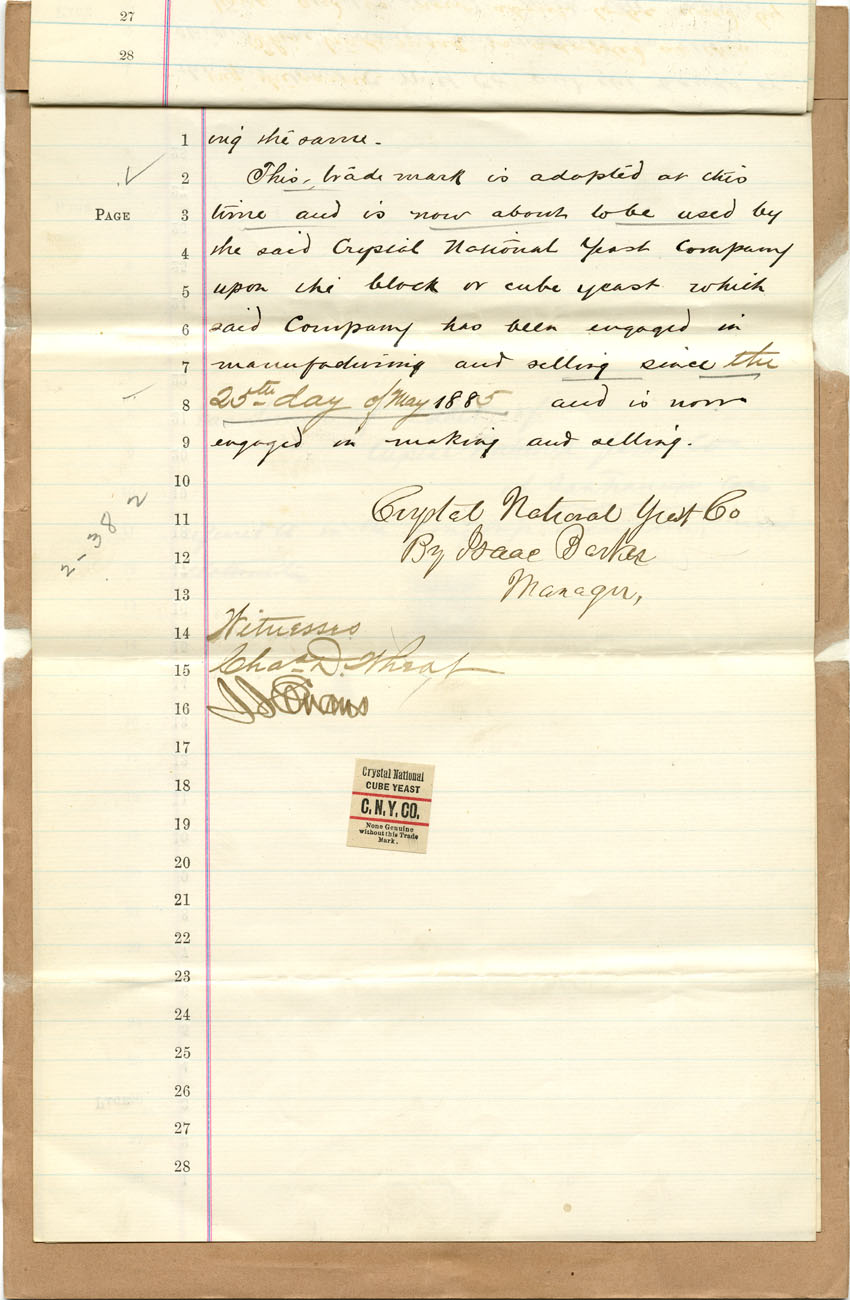 27
28
1 ing the same.
2 This trade mark is adopted at this
PAGE 3 time and is now about to be used by
4 the said Crystal National Yeast Company
5 upon the block or cube yeast which
6 said Company has been engaged in
7 manufacturing and selling since the
8 25th day of May 1885 and is now
9 engaged in making and selling.
10
11 Crystal National Yeast Co
12 By Isaac Barker
13 Manager,
2-382
14 Witnesses
15 Chas. D. Wheat
16 Evans
17
18
Crystal National
CUBE YEAST
C.N.Y.CO.
None Genuine
without this Trade
Mark.
19
20
21
22
23
24
25
26
27
28